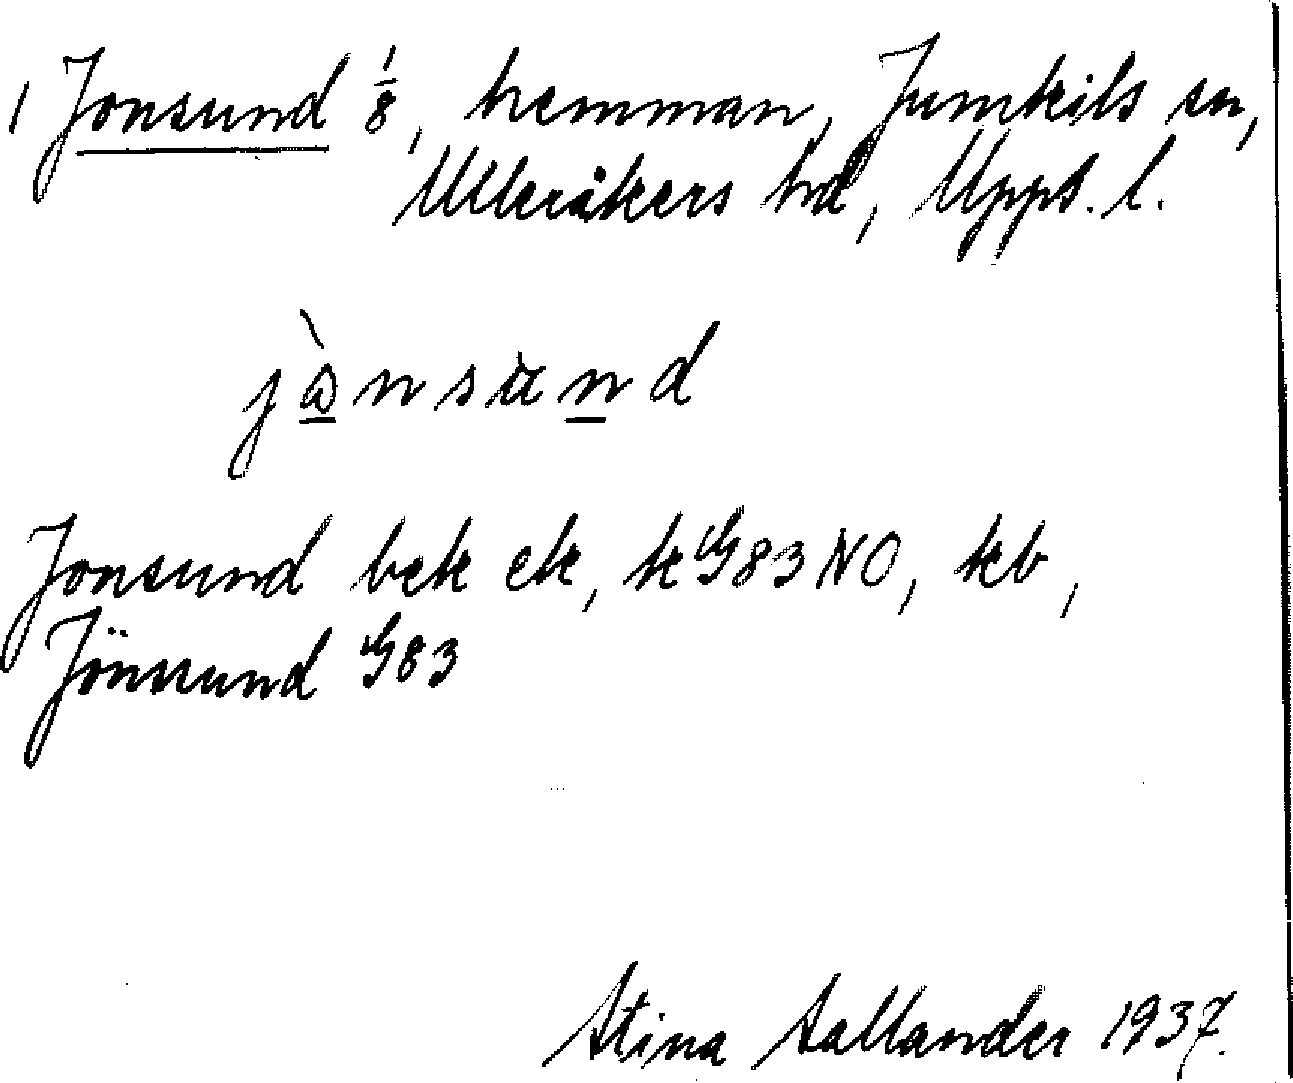 1 Jonsund 1/8, hemman, Jumkils sn,
Ulleråkers hd, Upps. l.
Jonsund bek ek, kG83NO, kb,
Jönssund G83
Stina Sallander 1937.